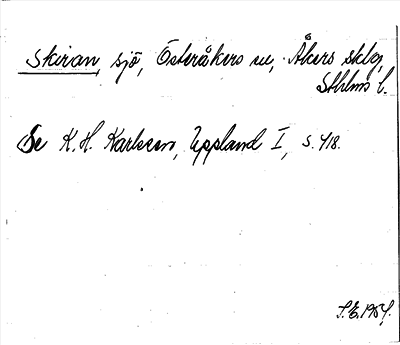 Skiran, sjö, Österåkers sn, Åkers sklg,
Sthlms l.
Se K. H. Karlsson, Uppland I, s. 418.
S.E. 1954.